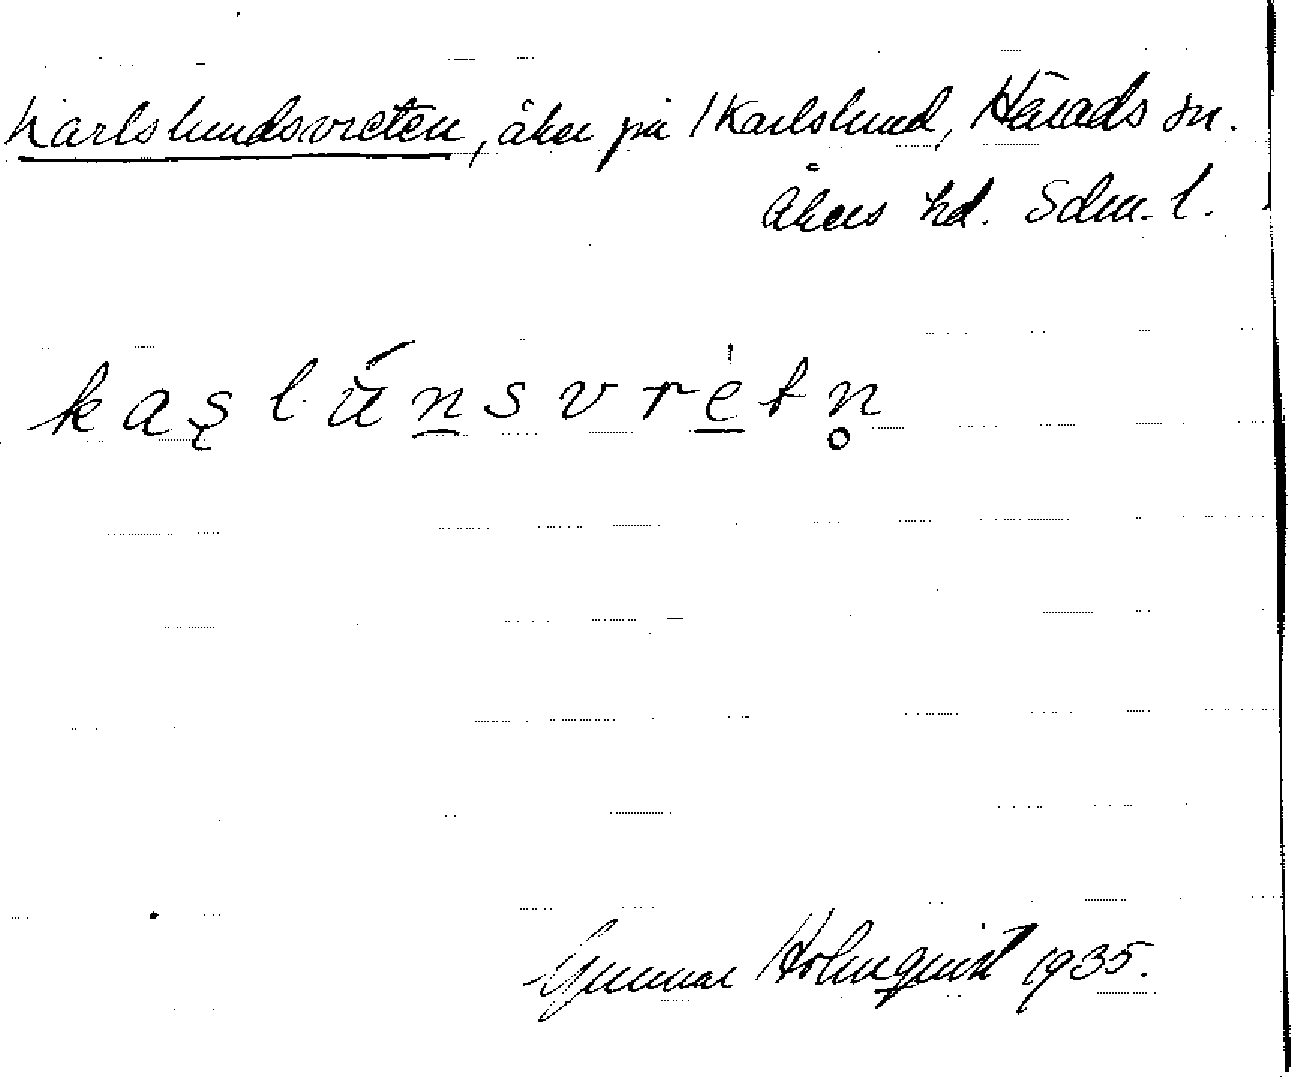 Karlslundsvreten, åker på /Karlslund, Härads sn.
Åkers hd. Sdm. l.
kaş lúṉsvrė̱tn̥
Gunnar Holmquist 1935.